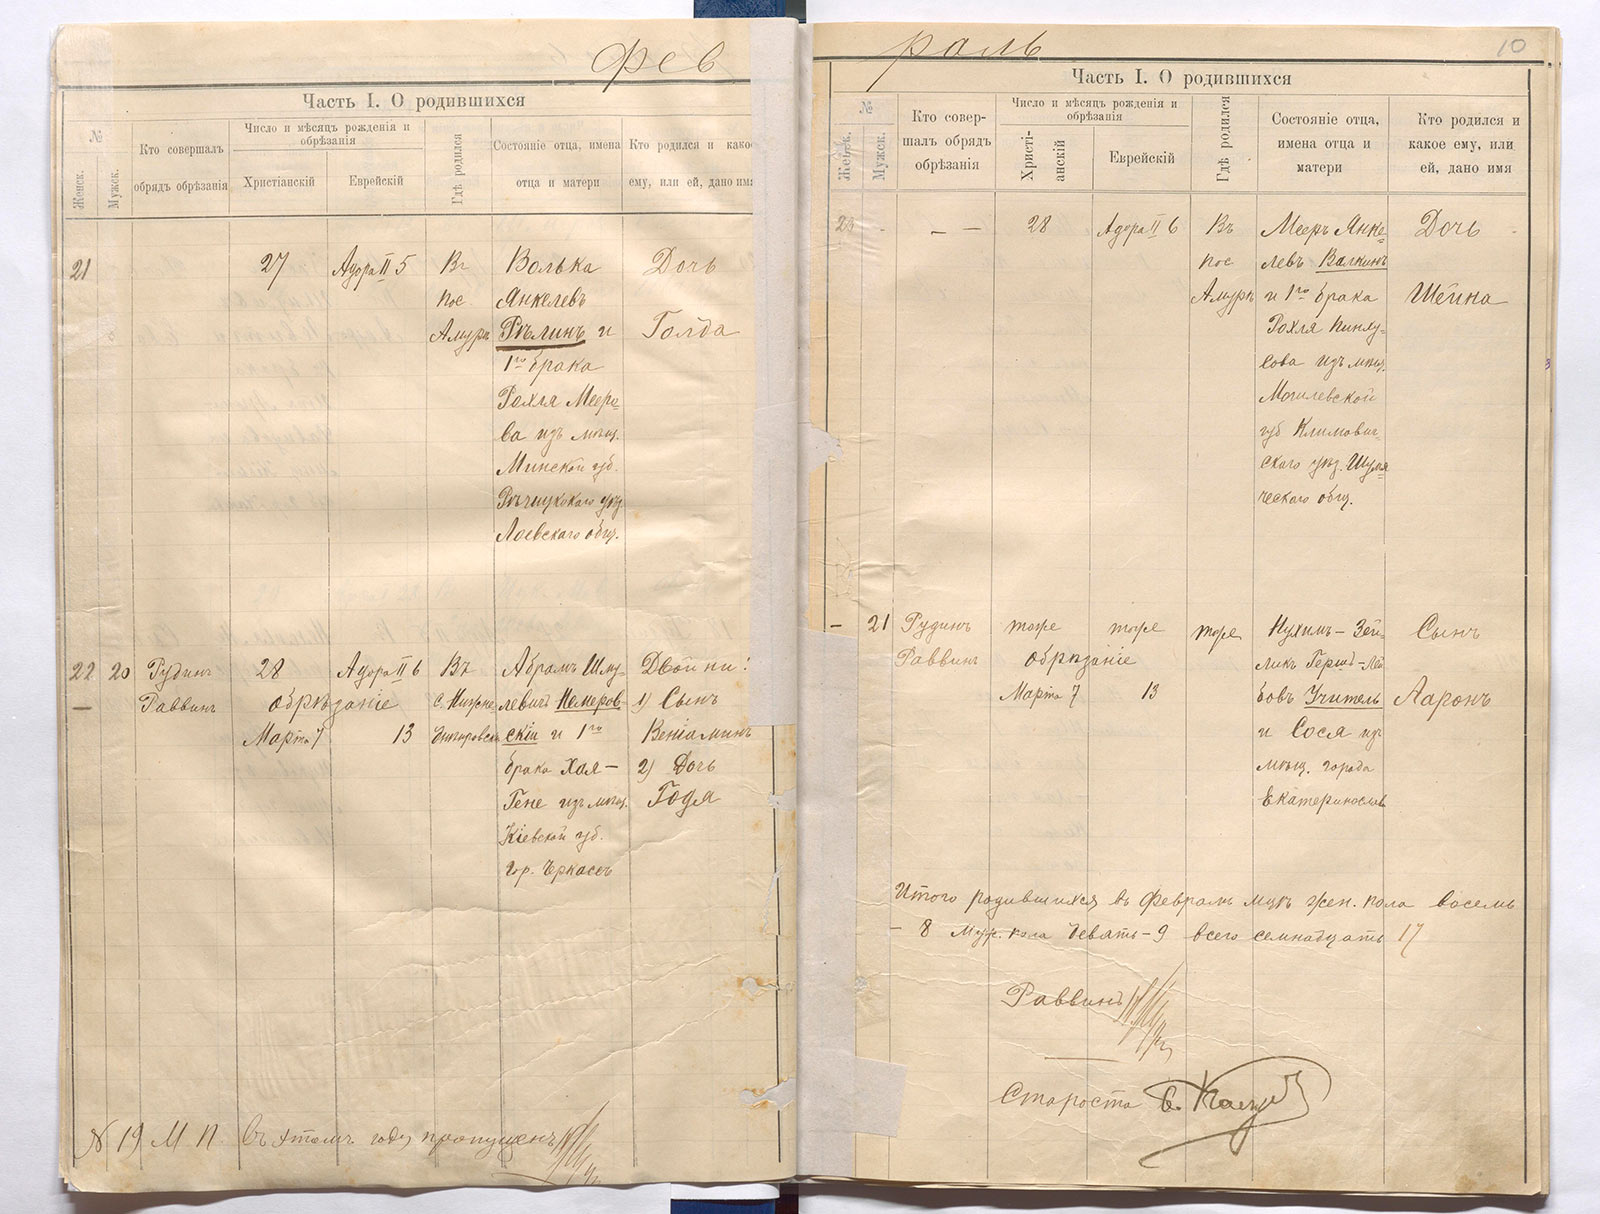 Фев
Часть I. О родившихся
№
Женск.
Мужск.
Кто совершалъ
обрядъ обрѣзанія
Число и мѣсяцъ рожденія и
обрѣзанія
Христіанскій
Еврейскій
Гдѣ родился
Состояніе отца, имена
отца и матери
Кто родился и какое
ему, или ей, дано имя
21
27
Адора II 5
Въ
пос.
Амуръ
Волька
Янкелевъ
Рѣлинъ и
1го брака
Рохля Мееро-
ва изъ мѣщ.
Минской губ.
Рѣчицкокаго уѣзд.
Лоевскаго общ.
Дочь
Голда
22
—
20
Рудинъ
Раввинъ
28
Адора II 6
обрѣзаніе
Марта 7
13
Въ
с. Нижне
Абрамъ Шму-
левичъ Немеров-
скій и 1го
брака Хая —
Гене изъ мѣщ.
Кіевской губ.
гор. Черкасъ
Двойни:
1) Сынъ
Веніаминъ
2) Дочь
Годя
№ 19 М П въ этомъ году пропущенъ
раль
10
Часть I. О родившихся
№
Женск.
Мужск.
Кто совер-
шалъ обрядъ
обрѣзанія
Число и мѣсяцъ рожденія и
обрѣзанія
Христі-
анскій
Еврейскій
Гдѣ родился
Состояніе отца,
имена отца и
матери
Кто родился и
какое ему, или
ей, дано имя
23
-
— —
28
Адора II 6
Въ
пос
Амуръ
Мееръ Янке-
левъ Валкинъ
и 1го брака
Рохля Пинху-
сова изъ мѣщ.
Могилевской
губ Климович-
скаго уѣзд. Шумя-
ческаго общ.
Дочь
Шейна
—
21
Рудинъ
Раввинъ
тоже
тоже
обрѣзаніе
Марта 7
13
тоже
Нухимъ — Зей-
ликъ Гершъ — Лей-
бовъ Учитель
и Сося изъ
мѣщ. города
Екатеринослав
Сынъ
Ааронъ
Итого родившихся въ Февралѣ мцѣ жен. пола восемь
— 8 муж. пола девять — 9 всего семнадцать 17
Раввинъ
Староста